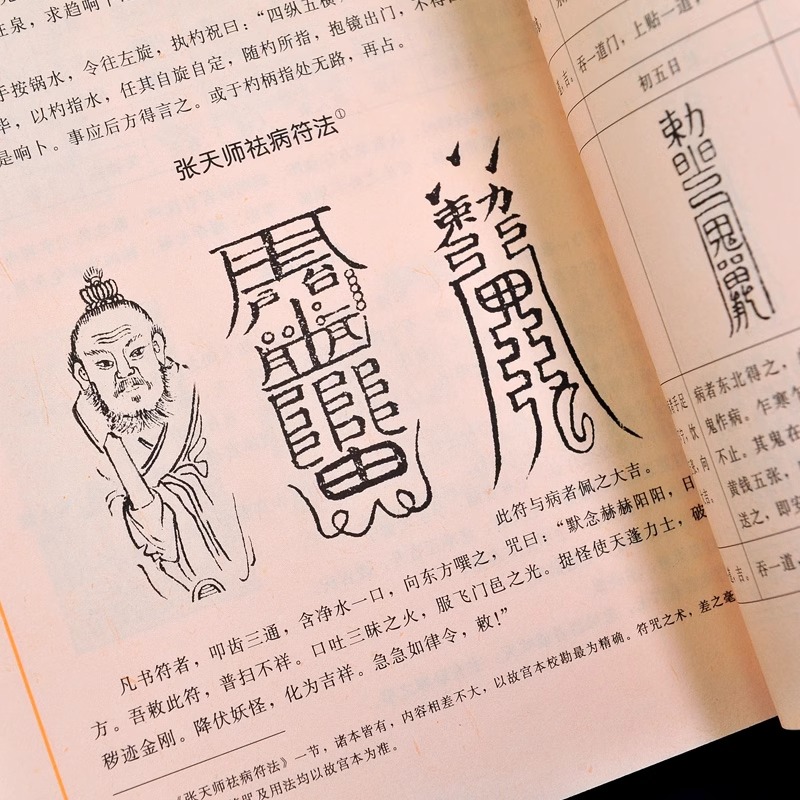 狂泉，求趋响卜
手按锅水，令往左旋，执杓祝曰：“四纵五横，
以杓指水，任其自旋自定，随杓所指，抱镜出门，不得
是响卜。事应后方得言之。或于杓柄指处无路，再占。
张天师祛病符法①
此符与病者佩之大吉。
凡书符者，叩齿三通，含净水一口，向东方噀之，咒曰：“默念赫赫阳阳，日
方。吾敕此符，普扫不祥。口吐三昧之火，服飞门邑之光。捉怪使天蓬力士，破
秽迹金刚。降伏妖怪，化为吉祥。急急如律令，敕！”
《张天师祛病符法》一节，诸本皆有，内容相差不大，以故宫本校勘最为精确。符咒之术，差之毫
咒及用法均以故宫本为准。
吞一道，上贴一道，
初五日
病者东北得之，
鬼作病。乍寒乍
不止。其鬼在
黄钱五张，
送之，即安
吞一道，